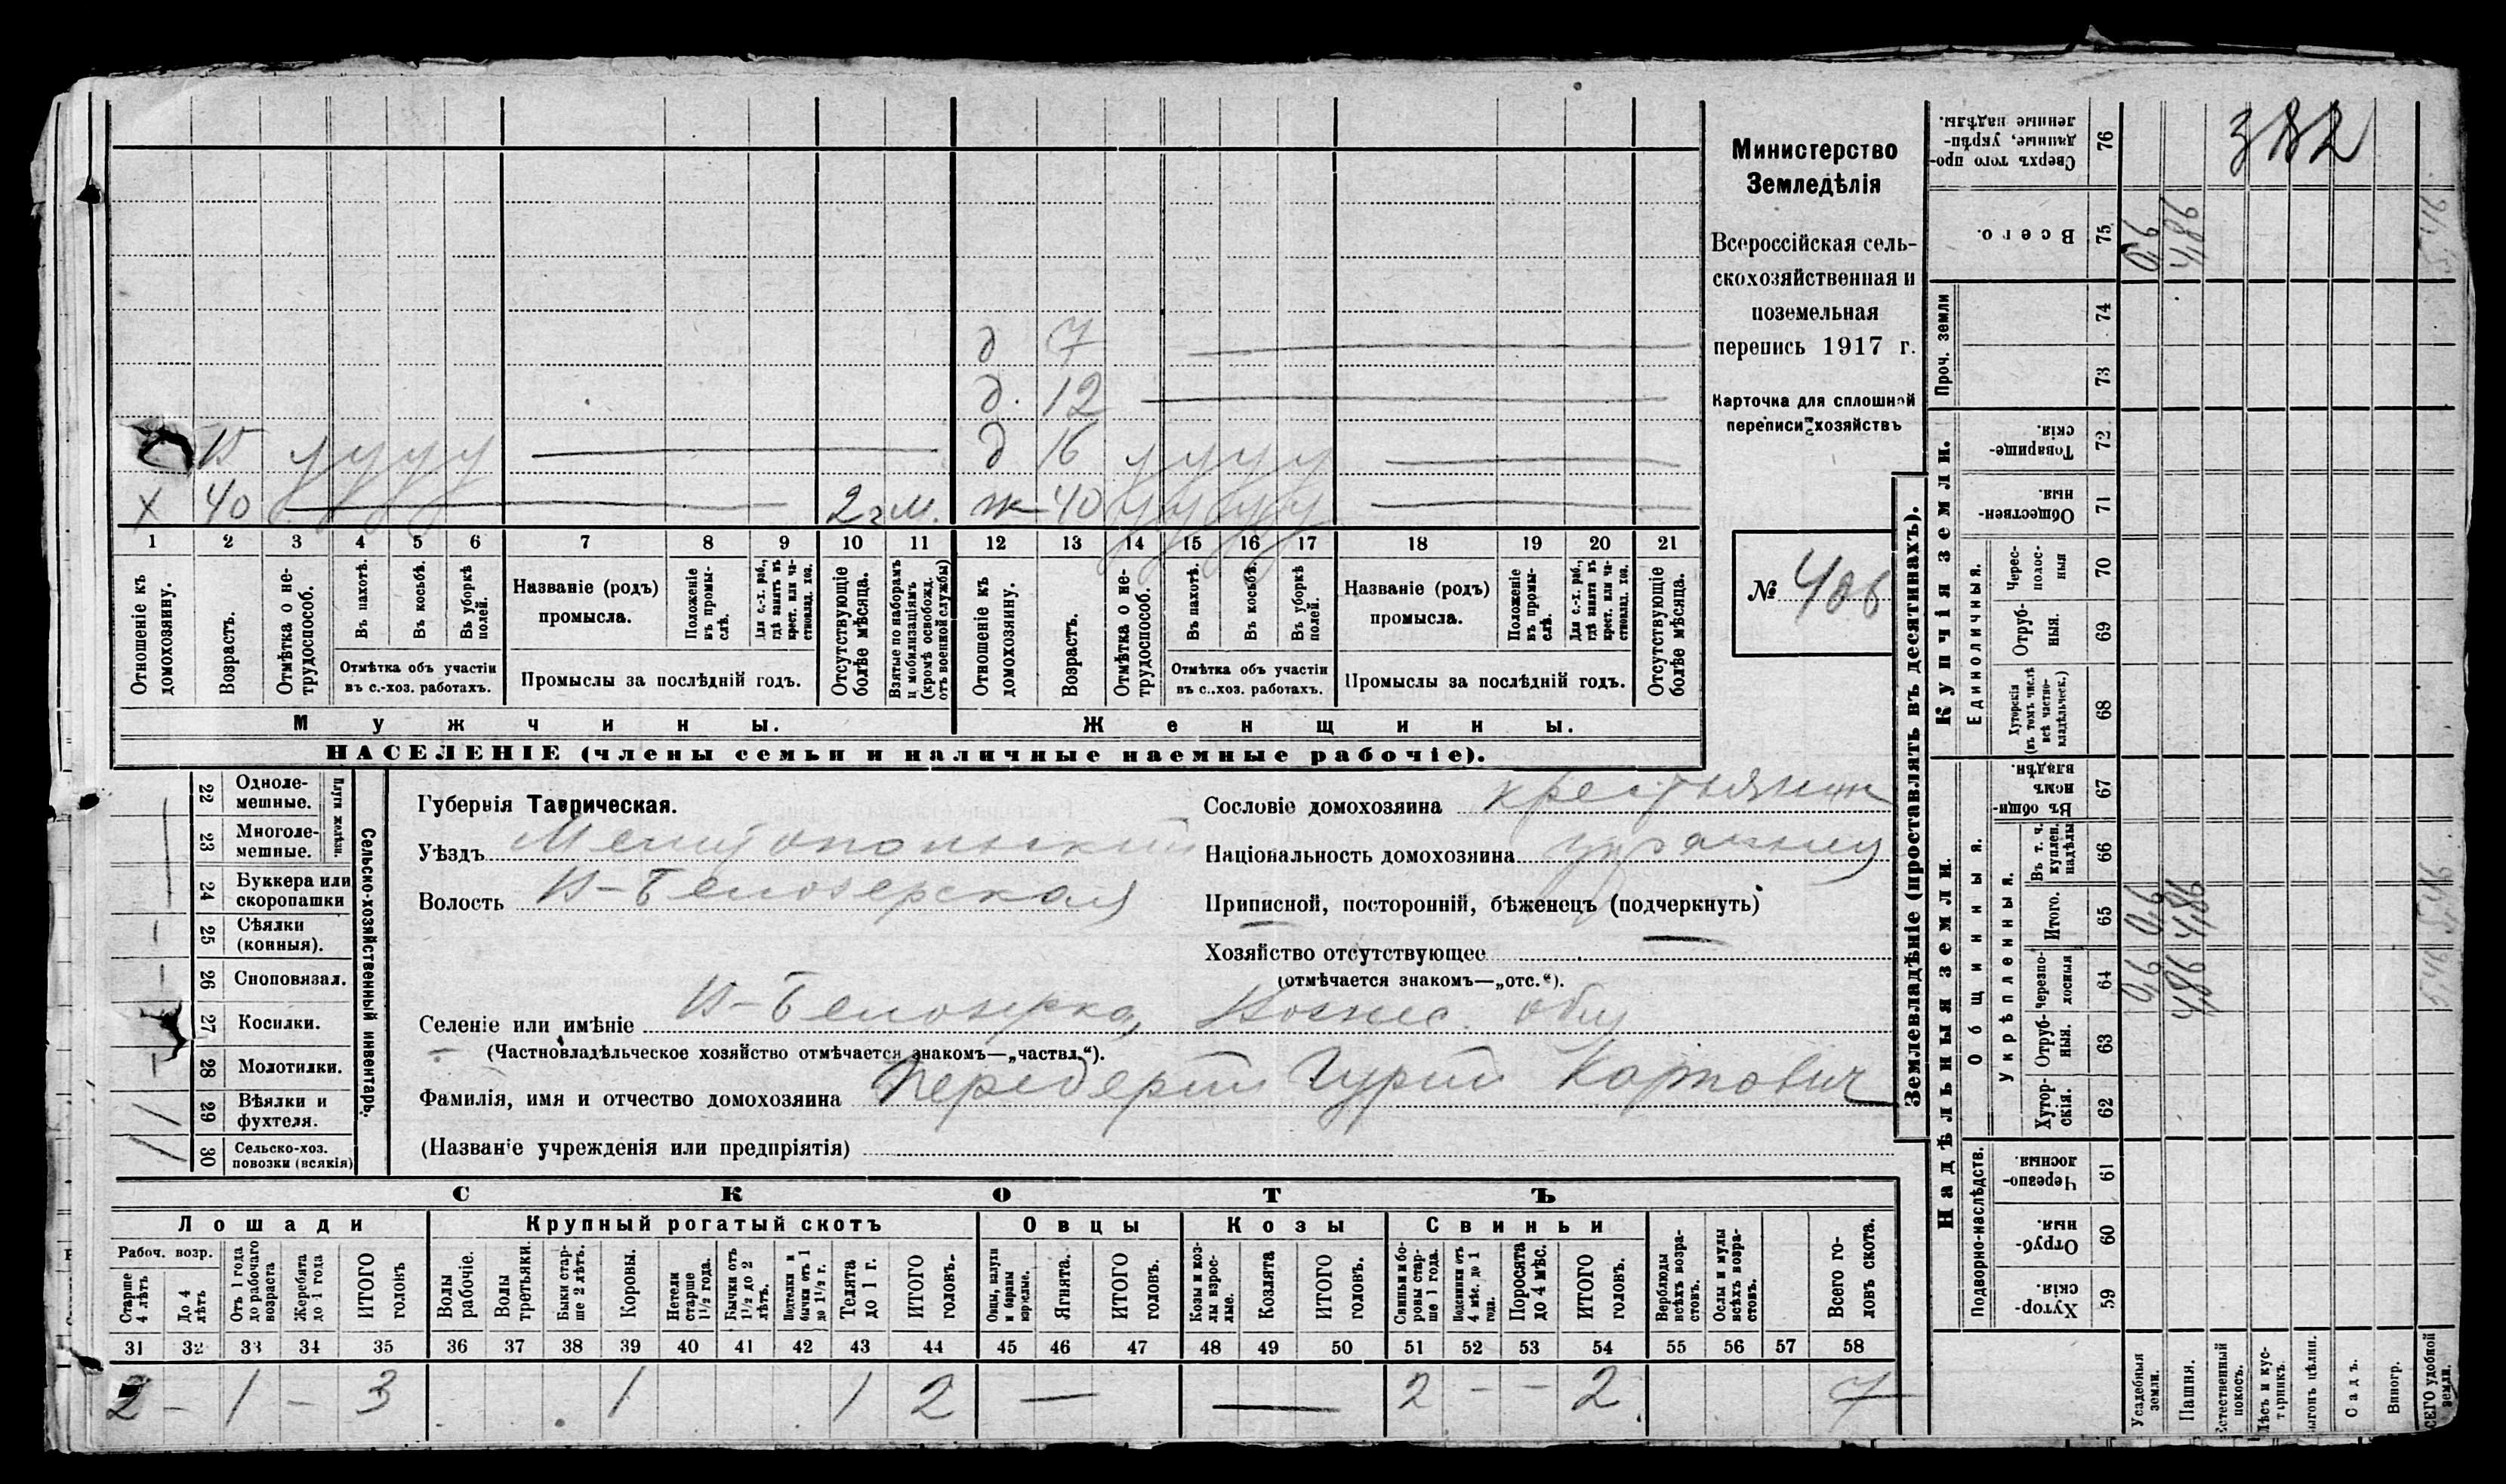 д 7
д. 12
15 у у у у д 16 у у у у
х 40 2 г м. ж 40 у у у у
1 2 3 4 5 6 7 8 9 10 11 12 13 14 15 16 17 18 19 20 21
Отношеніе къ домохозяину.
Возрастъ.
Отмѣтка о не-трудоспособ.
Въ пахотѣ.
Въ косьбѣ.
Въ уборкѣ полей.
Отмѣтка объ участіи въ с.-хоз. работахъ.
Названіе (родъ) промысла.
Положеніе въ промы-слѣ.
Для с.-х. раб., гдѣ занятъ въ крест. или ча-стновлад. хоз.
Промыслы за послѣдній годъ.
Отсутствующіе болѣе мѣсяца.
Взятые по наборамъ и мобилизаціямъ (кромѣ освобожд. отъ военной службы)
Отношеніе къ домохозяину.
Возрастъ.
Отмѣтка о не-трудоспособ.
Въ пахотѣ.
Въ косьбѣ.
Въ уборкѣ полей.
Отмѣтка объ участіи въ с..хоз. работахъ.
Названіе (родъ) промысла.
Положеніе въ промы-слѣ.
Для с.-х. раб., гдѣ занята въ крест. или ча-стновлад. хоз.
Промыслы за послѣдній годъ.
Отсутствующіе болѣе мѣсяца.
Мужчины. Женщины.
НАСЕЛЕНІЕ (члены семьи и наличные наемные рабочіе).
Министерство
Земледѣлія
Всероссійская сель-
скохозяйственная и
поземельная
перепись 1917 г.
Карточка для сплошной
переписи хозяйствъ
№ 406
22 Однолемешные.
23 Многолемешные.
Плуги желѣзн.
24 Буккера или скоропашки
25 Сѣялки (конныя).
26 Сноповязал.
27 Косилки.
28 Молотилки.
29 Вѣялки и фухтеля. 1
30 Сельско-хоз. повозки (всякія) 1
Сельско-хозяйственный инвентарь.
Губернія Таврическая.
Уѣздъ Мелитопольский
Волость В-Белозерская
Селеніе или имѣніе В-Белозерка, Вознес. общ
(Частновладѣльческое хозяйство отмѣчается знакомъ—„частвл.“).
Фамилія, имя и отчество домохозяина Передерий Гурий Карпович
(Названіе учрежденія или предпріятія)
Сословіе домохозяина крестьянин
Національность домохозяина украинец
Приписной, посторонній, бѣженецъ (подчеркнуть)
Хозяйство отсутствующее
(отмѣчается знакомъ—„отс.“).
СКОТЪ
Лошади Крупный рогатый скотъ Овцы Козы Свиньи
Рабоч. возр.
Старше 4 лѣтъ
До 4 лѣтъ
Отъ 1 года до рабочаго возраста
Жеребята до 1 года
ИТОГО головъ
Волы рабочіе.
Волы третьяки.
Быки стар-ше 2 лѣтъ.
Коровы.
Нетели старше 1½ года.
Бычки отъ 1½ до 2 лѣтъ.
Подтелки и бычки отъ 1 до 1½ г.
Телята до 1 г.
ИТОГО головъ.
Овцы, валухи и бараны взрослые.
Ягнята.
ИТОГО головъ.
Козы и коз-лы взрос-лые.
Козлята
ИТОГО головъ.
Свиньи и бо-ровы стар-ше 1 года.
Подсвинки отъ 4 мѣс. до 1 года.
Поросята до 4 мѣс.
ИТОГО головъ.
Верблюды всѣхъ возра-стовъ.
Ослы и мулы всѣхъ возра-стовъ.
Всего го-ловъ скота.
31 32 33 34 35 36 37 38 39 40 41 42 43 44 45 46 47 48 49 50 51 52 53 54 55 56 57 58
2 – 1 – 3 1 1 2 — — 2 – – 2 7
Землевладѣніе (проставлять въ десятинахъ).
Купчія земли.
Надѣльныя земли.
382
Сверхъ того про-данные, укрѣп-ленные надѣлы. 76
Всего. 75 0,6 4,86
Проч. земли 74 73
Товарище-скія. 72
Обществен-ныя. 71
Единоличныя.
Черес-полос-ныя 70
Отруб-ныя. 69
Хуторскія (въ томъ числѣ всѣ частно-владѣльческ.) 68
Общинныя.
Въ общи-нномъ владѣн. 67
Укрѣпленныя.
Въ т. ч. куплен. надѣлы 66
Итого. 65 0,6 4,86
Черезпо-лосныя 64 0,6 4,86
Отруб-ныя. 63
Хутор-скія. 62
Подворно-наслѣдств.
Черезпо-лосныя. 61
Отруб-ныя. 60
Хутор-скія. 59
Усадебныя земли.
Пашня.
Естественный покосъ.
Лѣсъ и кус-тарникъ.
Выгонъ цѣлин.
Садъ.
Виногр.
ВСЕГО удобной земли.